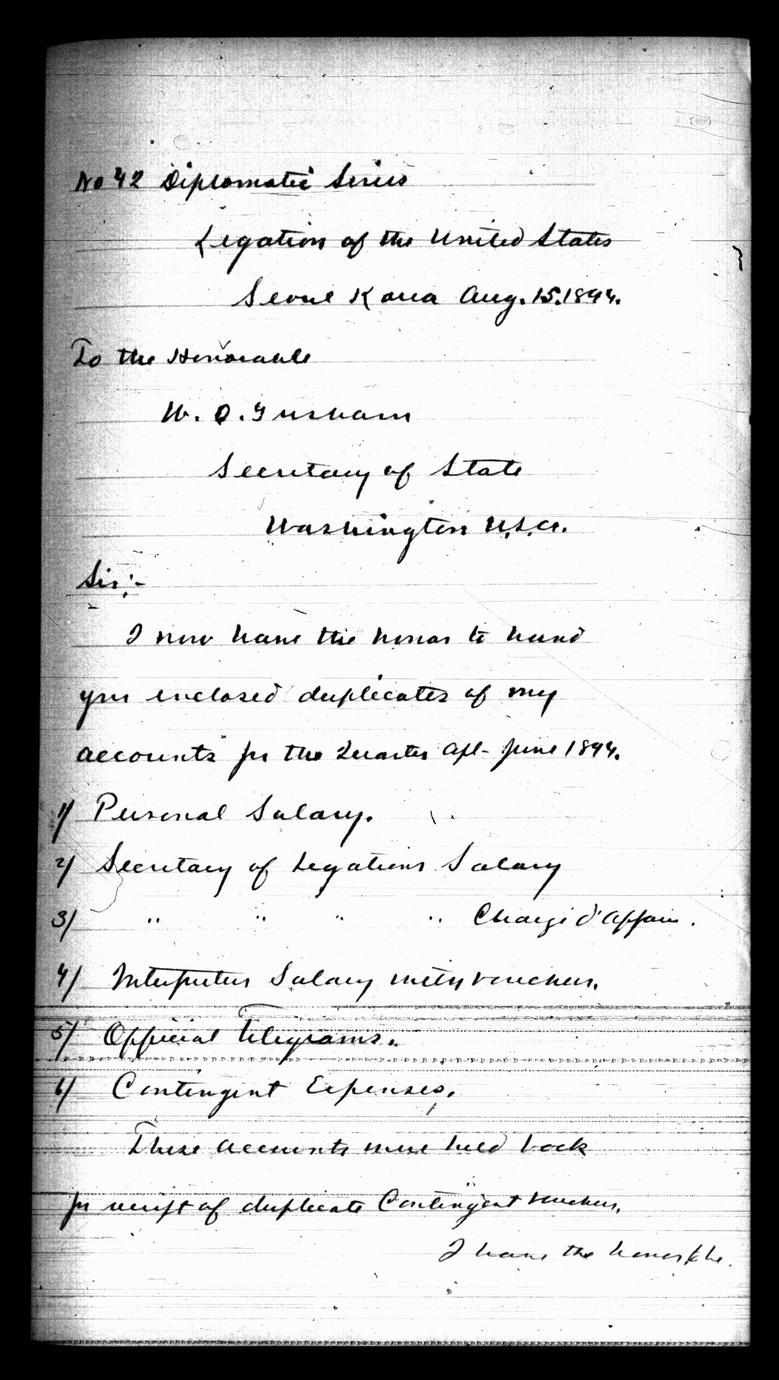 No 42 Diplomatic Series
Legation of the United States
Seoul Korea Aug. 15. 1894.
To the Honorable
W. Q. Gresham
Secretary of State
Washington U.S.A.
Sir:-
I now have the honor to hand
you enclosed duplicates of my
accounts for the Quarter Apl- June 1894.
1/ Personal Salary.
2/ Secretary of Legations Salary
3/ " " " " Chargé d'Affairs.
4/ Interpreters Salary with vouchers.
5/ Official Telegrams.
6/ Contingent Expenses.
These accounts were held back
for receipt of duplicate Contingent vouchers.
I have the honor